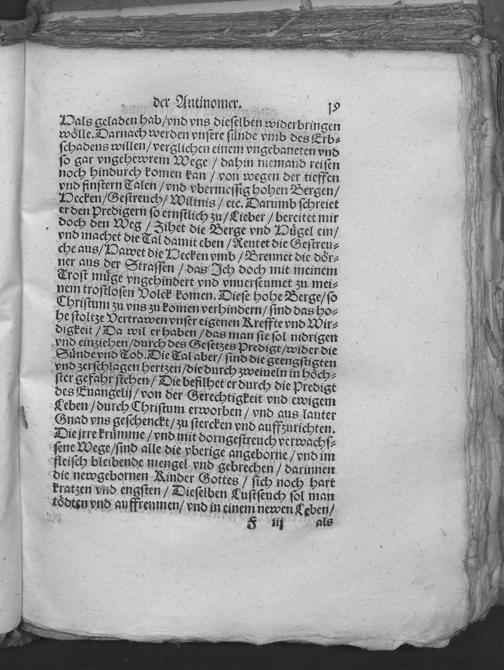 der Antinomer. 39
Hals geladen hab/vnd vns dieselben widerbringen
wölle. Darnach werden vnsere sünde vmb des Erb-
schadens willen/verglichen einem vngebaneten vnd
so gar vngehewrem Wege / dahin niemand reisen
noch hindurch komen kan / von wegen der tieffen
vnd finstern Talen/vnd vbermessig hohen Bergen/
Hecken/Gestreuch/Wiltnis / etc. Darumb schreiet
er den Predigern so ernstlich zu/Lieber / bereitet mir
doch den Weg / Zihet die Berge vnd Hügel ein/
vnd machet die Tal damit eben /Reutet die Gestreu-
che aus/Hawet die Hecken vmb / Brennet die dör-
ner aus der Strassen / das Ich doch mit meinem
Trost müge vngehindert vnd vnuerseumet zu mei-
nem trostlosen Volck komen. Diese hohe Berge/so
Christum zu vns zu komen verhindern/ sind das ho-
he stoltze Vertrawen vnser eigenen Kreffte vnd Wir-
digkeit / Da wil er haben / das man sie sol nidrigen
vnd einziehen/durch des Gesetzes Predigt/wider die
Sünde vnd Tod. Die Tal aber / sind die geengstigten
vnd zerschlagen hertzen/die durch zweineln in höch-
ster gefahr stehen / Die befilhet er durch die Predigt
des Euangelij / von der Gerechtigkeit vnd ewigem
Leben /durch Christum erworben / vnd aus lauter
Gnad vns geschenckt / zu stercken vnd auffzurichten.
Die jrre krümme /vnd mit dorngestreuch verwachs-
sene Wege/sind alle die vberige angeborne /vnd im
fleisch bleibende mengel vnd gebrechen / darinnen
die newgebornen Kinder Gottes / sich noch hart
kratzen vnd engsten / Dieselben Lustseuch sol man
tödten vnd auffreumen/ vnd in einem newen Leben/
F iij als